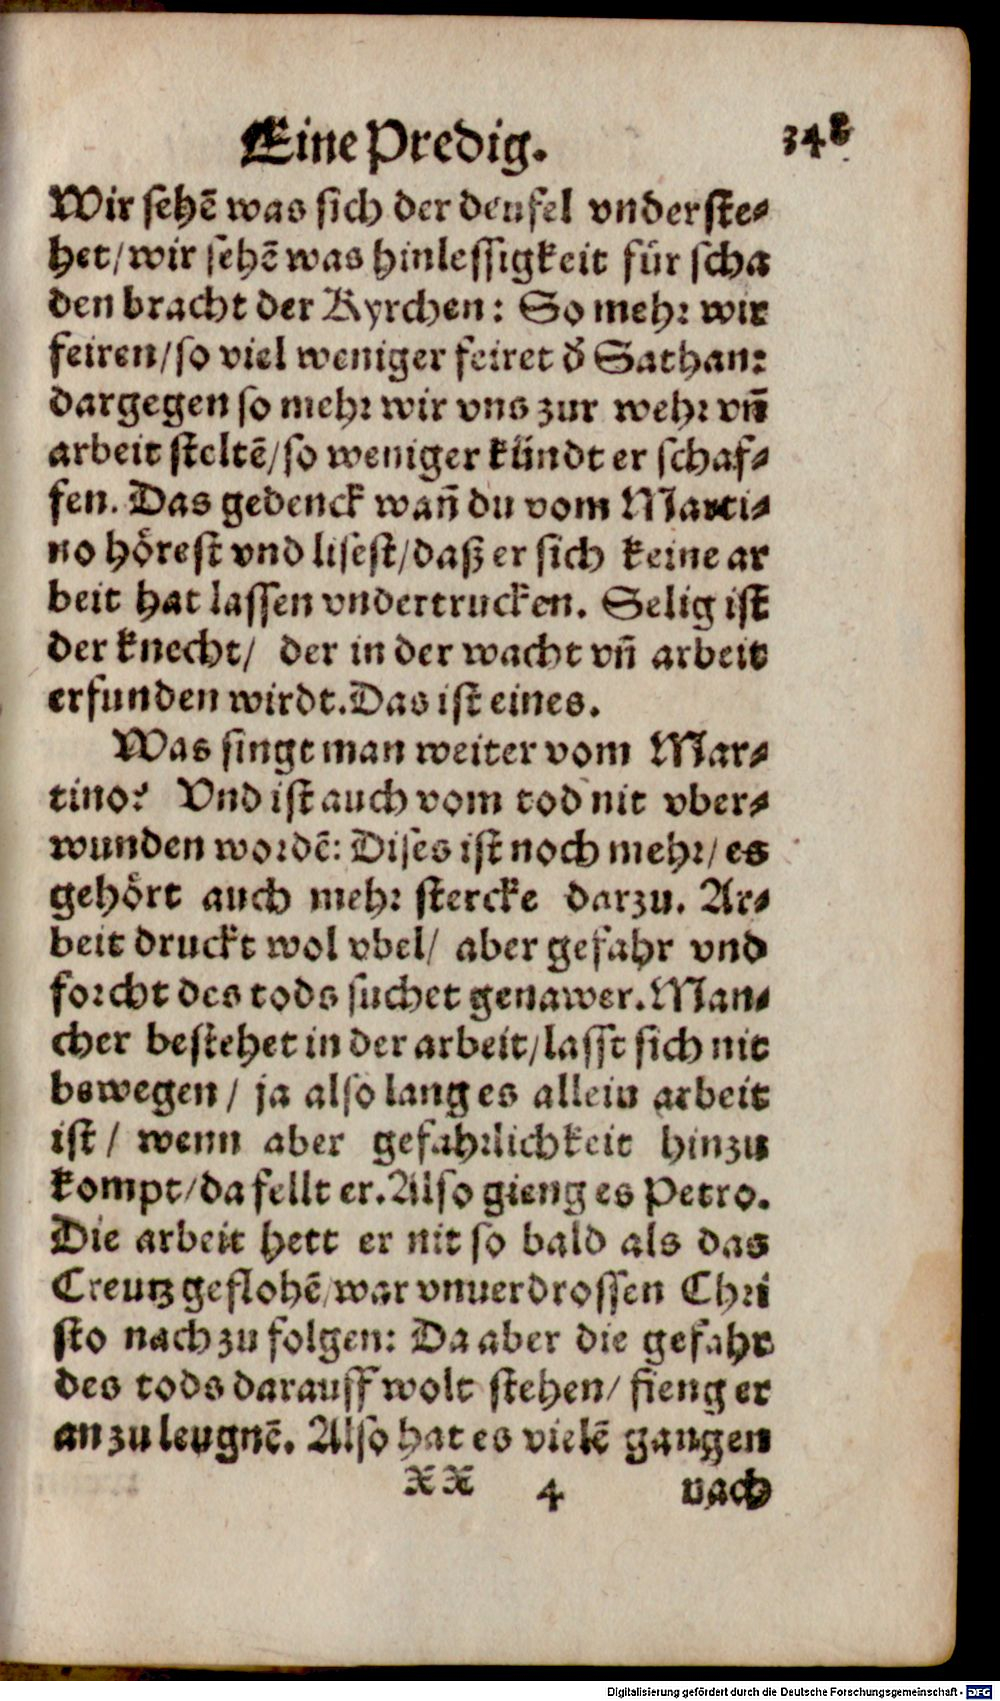 Eine Predig. 348
Wir sehẽ was sich der deufel vnderste⸗
het/ wir sehẽ was hinlessigkeit für scha
den bracht der Kyrchen: So mehr wir
feiren/ so viel weniger feiret ð Sathan:
dargegen so mehr wir vns zur wehr vñ
arbeit steltẽ/ so weniger kündt er schaf⸗
fen. Das gedenck wañ du vom Marti⸗
no hörest vnd lisest/ daß er sich keine ar
beit hat lassen vndertrucken. Selig ist
der knecht/ der in der wacht vñ arbeit
erfunden wirdt. Das ist eines.
Was singt man weiter vom Mar⸗
tino? Vnd ist auch vom tod nit vber⸗
wunden wordẽ: Dises ist noch mehr/ es
gehört auch mehr stercke darzu. Ar⸗
beit druckt wol vbel/ aber gefahr vnd
forcht des tods suchet genawer. Man⸗
cher bestehet in der arbeit/ lasst sich nit
bewegen/ ja also lang es allein arbeit
ist/ wenn aber gefahrlichkeit hinzu
kompt/ da fellt er. Also gieng es Petro.
Die arbeit hett er nit so bald als das
Creutz geflohẽ/ war vnuerdrossen Chri
sto nach zu folgen: Da aber die gefahr
des tods darauff wolt stehen/ fieng er
an zu leugnẽ. Also hat es vielẽ gangen
XX 4 nach
Digitalisierung gefördert durch die Deutsche Forschungsgemeinschaft - DFG